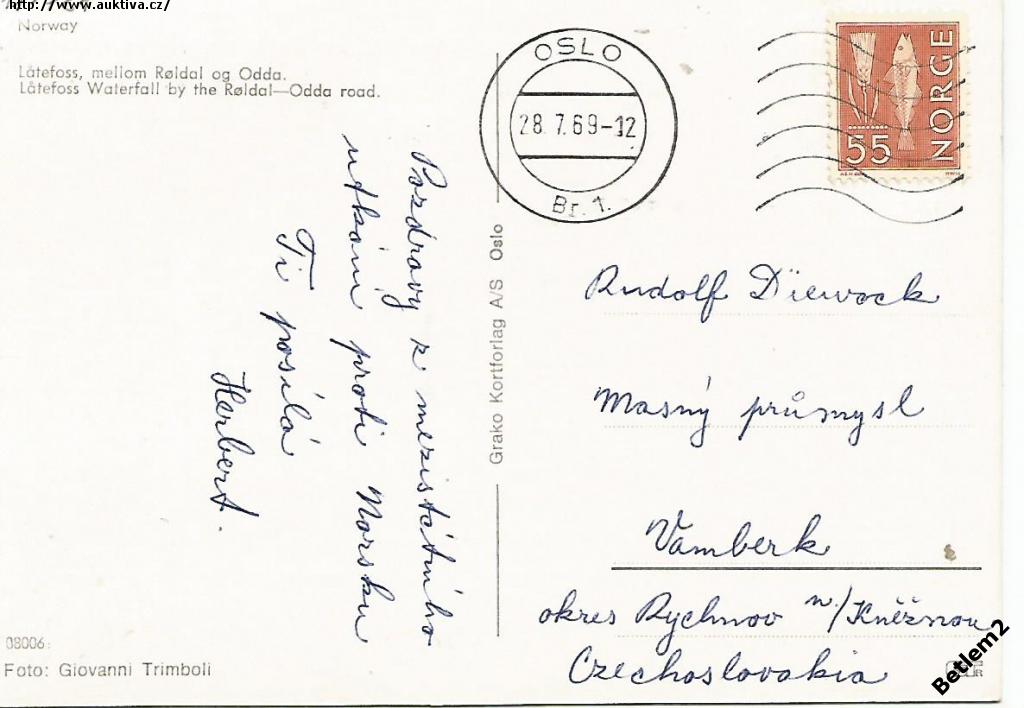 http://www.auktiva.cz/
Norway
Låtefoss, mellom Røldal og Odda.
Låtefoss Waterfall by the Røldal—Odda road.
OSLO
28.7.69-12
Br. 1.
55
NORGE
Pozdravy z mezistátního
utkání proti Norsku
Ti posílá
Herbert.
Grako Kortforlag A/S Oslo
Rudolf Diewock
Masný průmysl
Vamberk
okres Rychnov n/Kněžnou
Czechoslovakia
08006:
Foto: Giovanni Trimboli
Betlem2